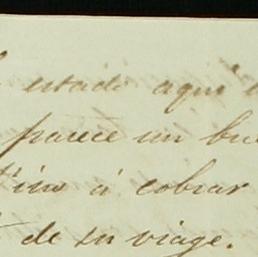 estado aqui
parece un bu
á cobrar
de su viage.